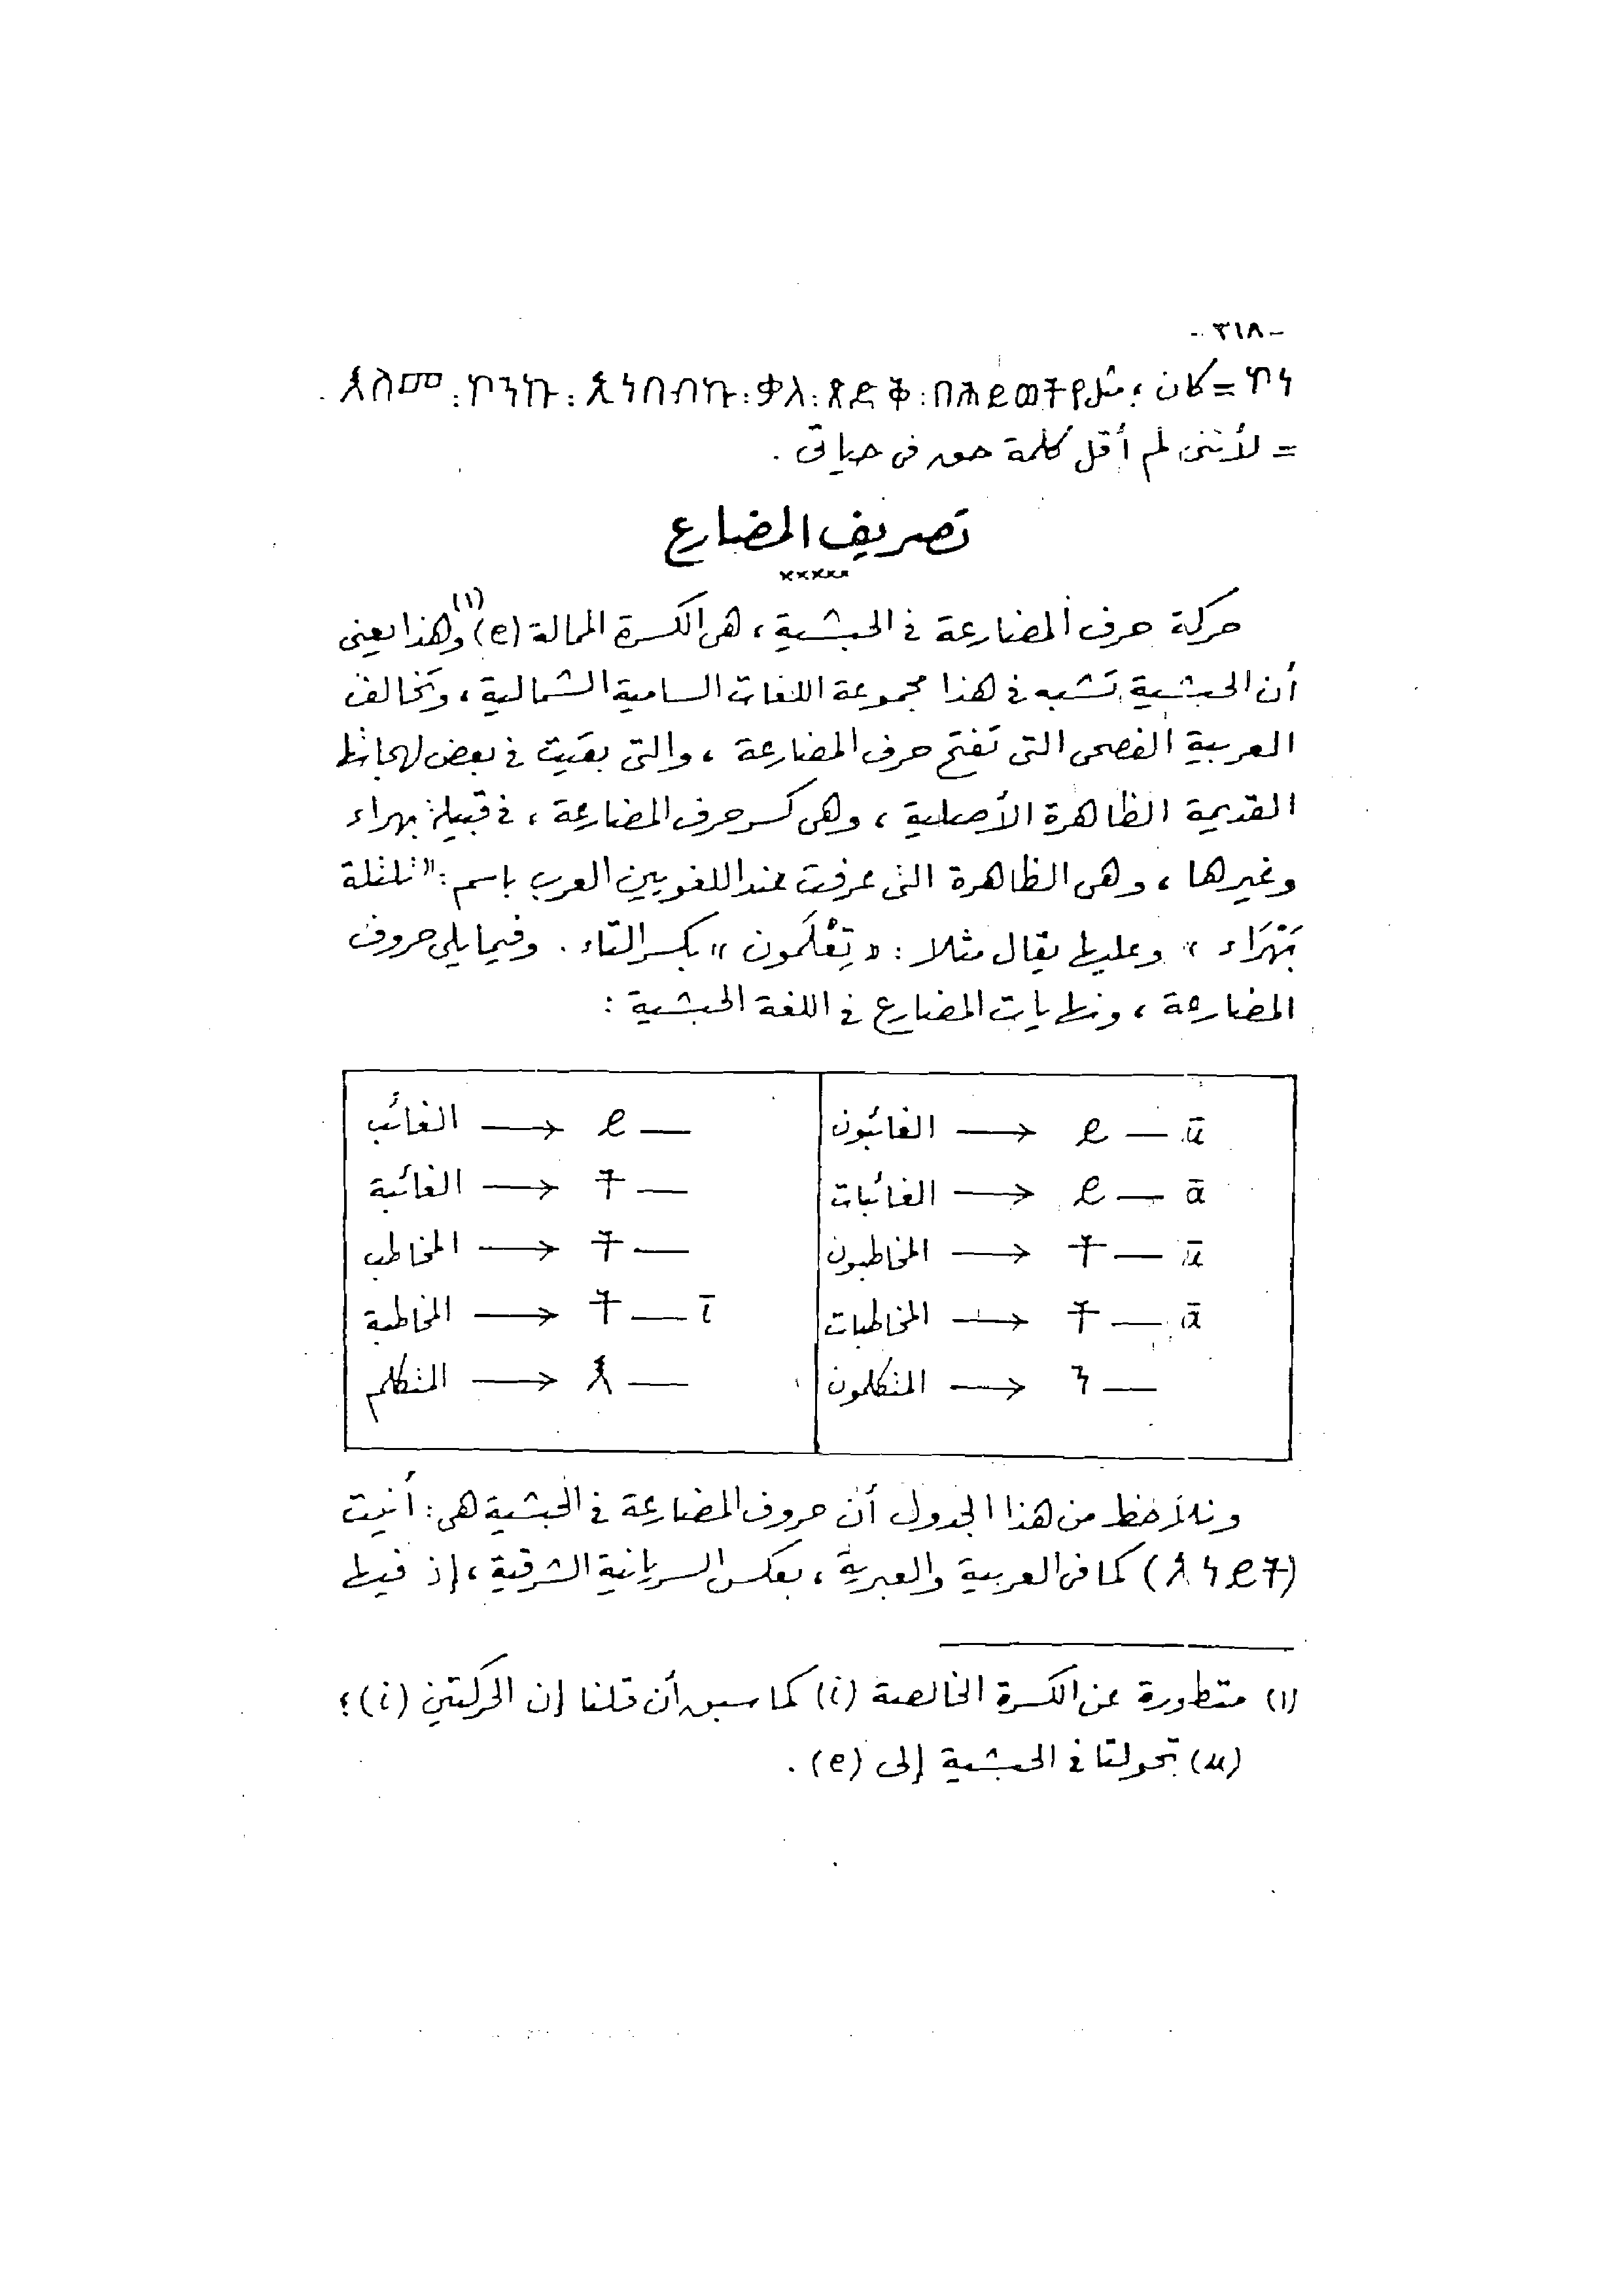 - ٣١٨ -
ኮነ = كان ؛ مثل እስመ : ኮንኩ : ኢነበብኩ : ቃለ : ጽድቅ : በሕይወትየ .
= لأننى لم أقل كلمة حق فى حياتى .
تصريف المضارع
×××××
حركة حرف المضارعة فى الحبشية ، هى الكسرة الممالة (e) (١) وهذا يعنى
أن الحبشية تشبه فى هذا مجموعة اللغات السامية الشمالية ، وتخالف
العربية الفصحى التى تفتح حرف المضارعة ، والتى بقيت فى بعض لهجاتها
القديمة الظاهرة الأصلية ، وهى كسر حرف المضارعة ، فى قبيلة بهراء
وغيرها ، وهى الظاهرة التى عرفت عند اللغويين العرب باسم : « تلتلة
بَهْرَاء » وعليها يقال مثلا : « تِعْلَمون » بكسر التاء . وفيما يلى حروف
المضارعة ، ونهايات المضارع فى اللغة الحبشية :
الغائب ⟶ ይ — الغائبون ⟶ ይ — ū
الغائبة ⟶ ት — الغائبات ⟶ ይ — ā
المخاطب ⟶ ት — المخاطبون ⟶ ት — ū
المخاطبة ⟶ ት — ī المخاطبات ⟶ ት — ā
المتكلم ⟶ እ — المتكلمون ⟶ ን —
ونلاحظ من هذا الجدول أن حروف المضارعة فى الحبشية هى : أنيت
(አነየተ) كما فى العربية والعبرية ، بعكس السريانية الشرقية ، إذ فيها
(١) متطورة عن الكسرة الخالصة (i) كما سبق أن قلنا إن الحركتين (i) ؛
(u) تحولتا فى الحبشية إلى (e) .